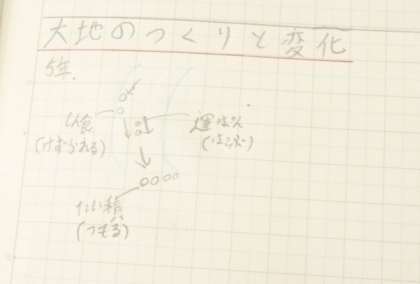 大地のつくりと変化
5年.
しん食
(けずられる)
運ぱん
(はこぶ)
たい積
(つもる)